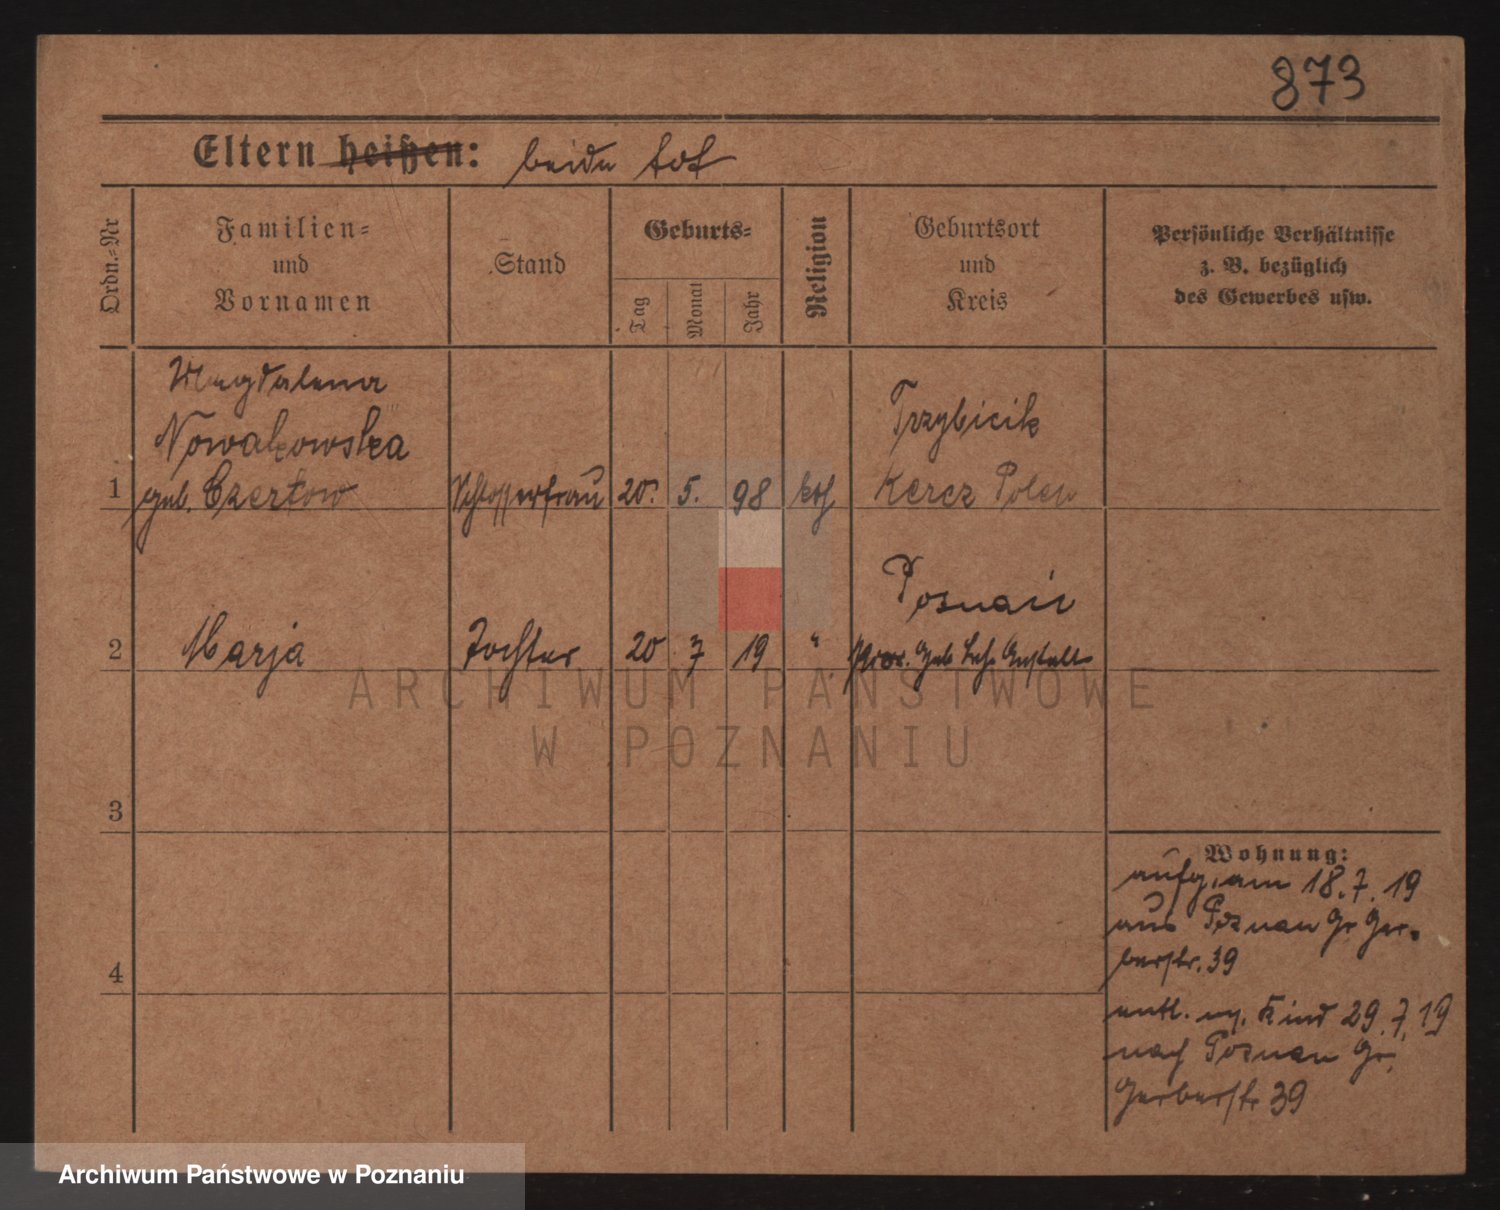 873
Eltern heißen: beide tot
Ordn.-Nr
Familien=
und
Vornamen
Stand
Geburts=
Tag
Monat
Jahr
Religion
Geburtsort
und
Kreis
Persönliche Verhältnisse
z. B. bezüglich
des Gewerbes usw.
Magdalena
Nowakowska
1 geb. Czertow Schlosserfrau 20. 5. 98 kth Kercz Polen
Poznań
2 Marja Tochter 20 7 19 " Prov. Geb. Anstalt
3
4
Wohnung:
aufg. am 18.7.19
aus Poznan Gr. Ger-
berstr. 39
entl. m. Kind 29.7.19
nach Poznan Gr.
Gerberstr 39
ARCHIWUM PAŃSTWOWE
W POZNANIU
Archiwum Państwowe w Poznaniu